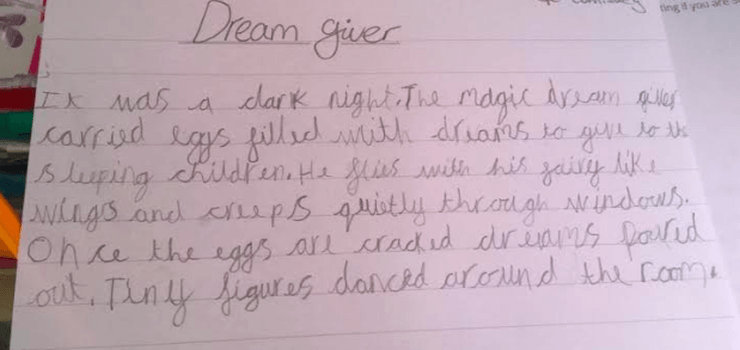 Dream giver
ting if you are
It was a dark night. The magic dream giver
carried eggs filled with dreams to give to the
sleeping children. He flies with his fairy like
wings and creeps quietly through windows.
Once the eggs are cracked dreams poured
out. Tiny figures danced around the room.